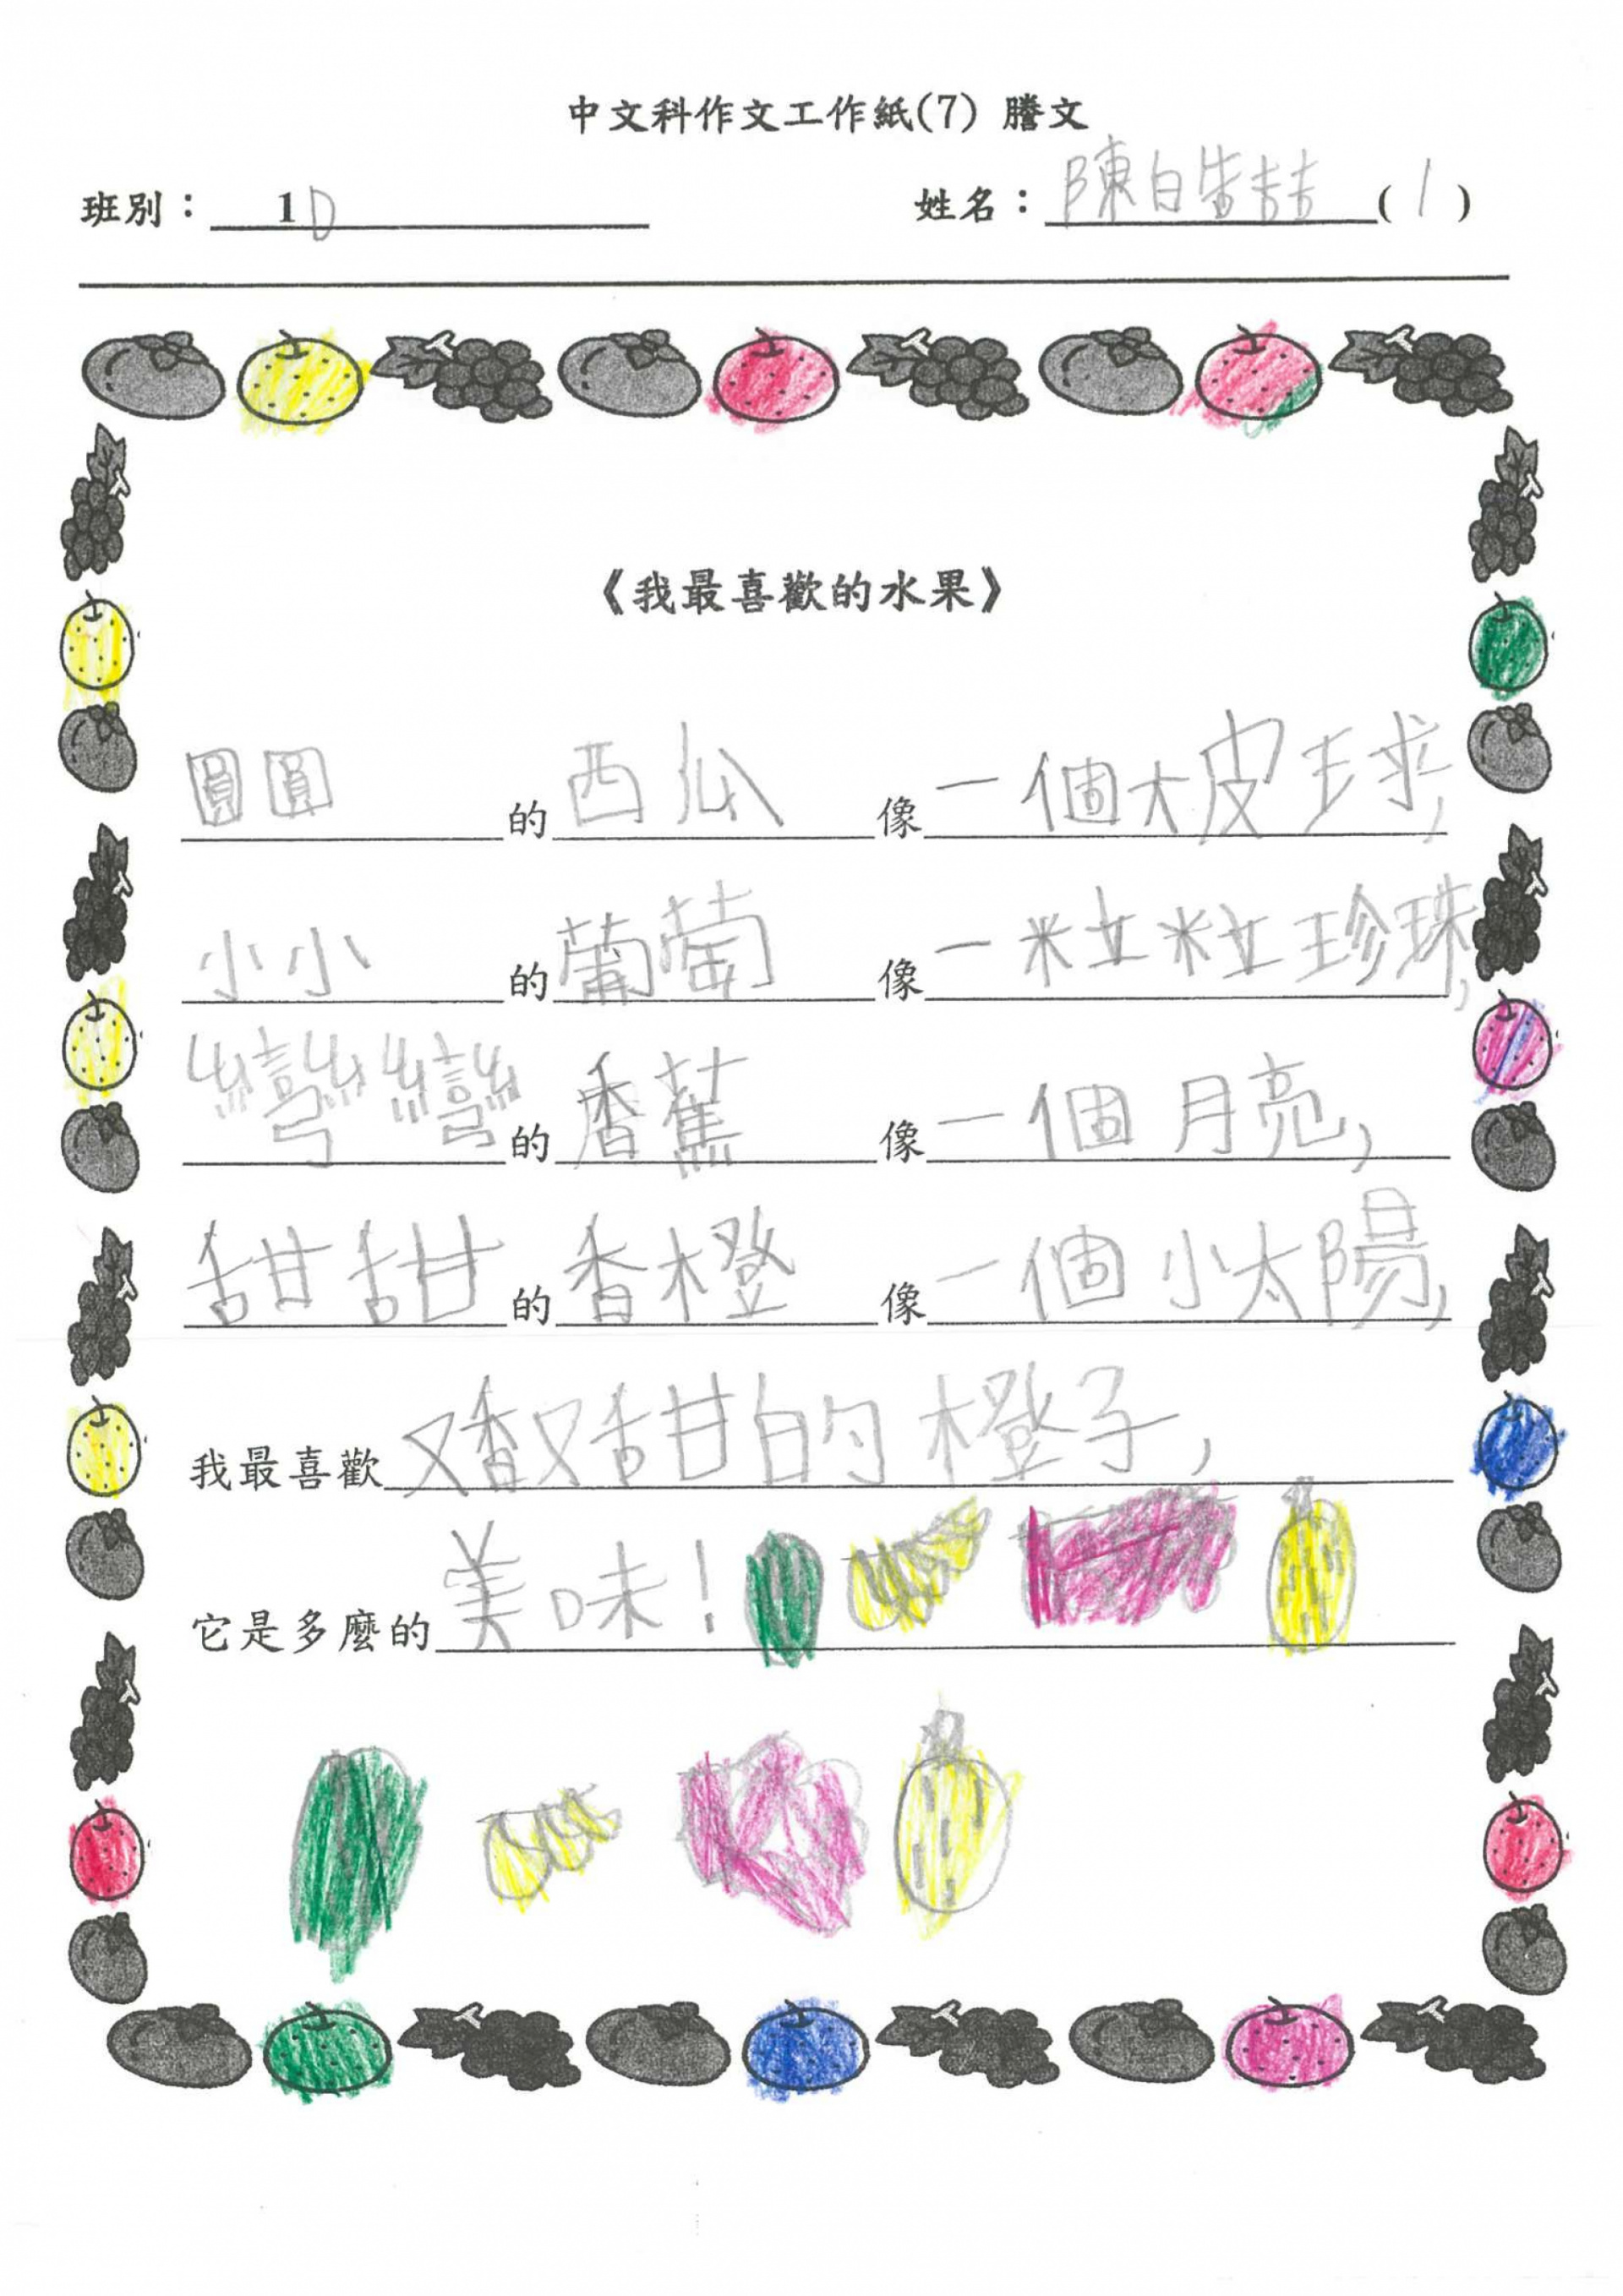 中文科作文工作紙(7) 謄文
班別：1D 姓名：陳白 (1)
《我最喜歡的水果》
圓圓的西瓜像一個大皮球,
小小的葡萄像一粒粒珍珠,
彎彎的香蕉像一個月亮,
甜甜的香橙像一個小太陽,
我最喜歡又香又甜的橙子,
它是多麼的美味!